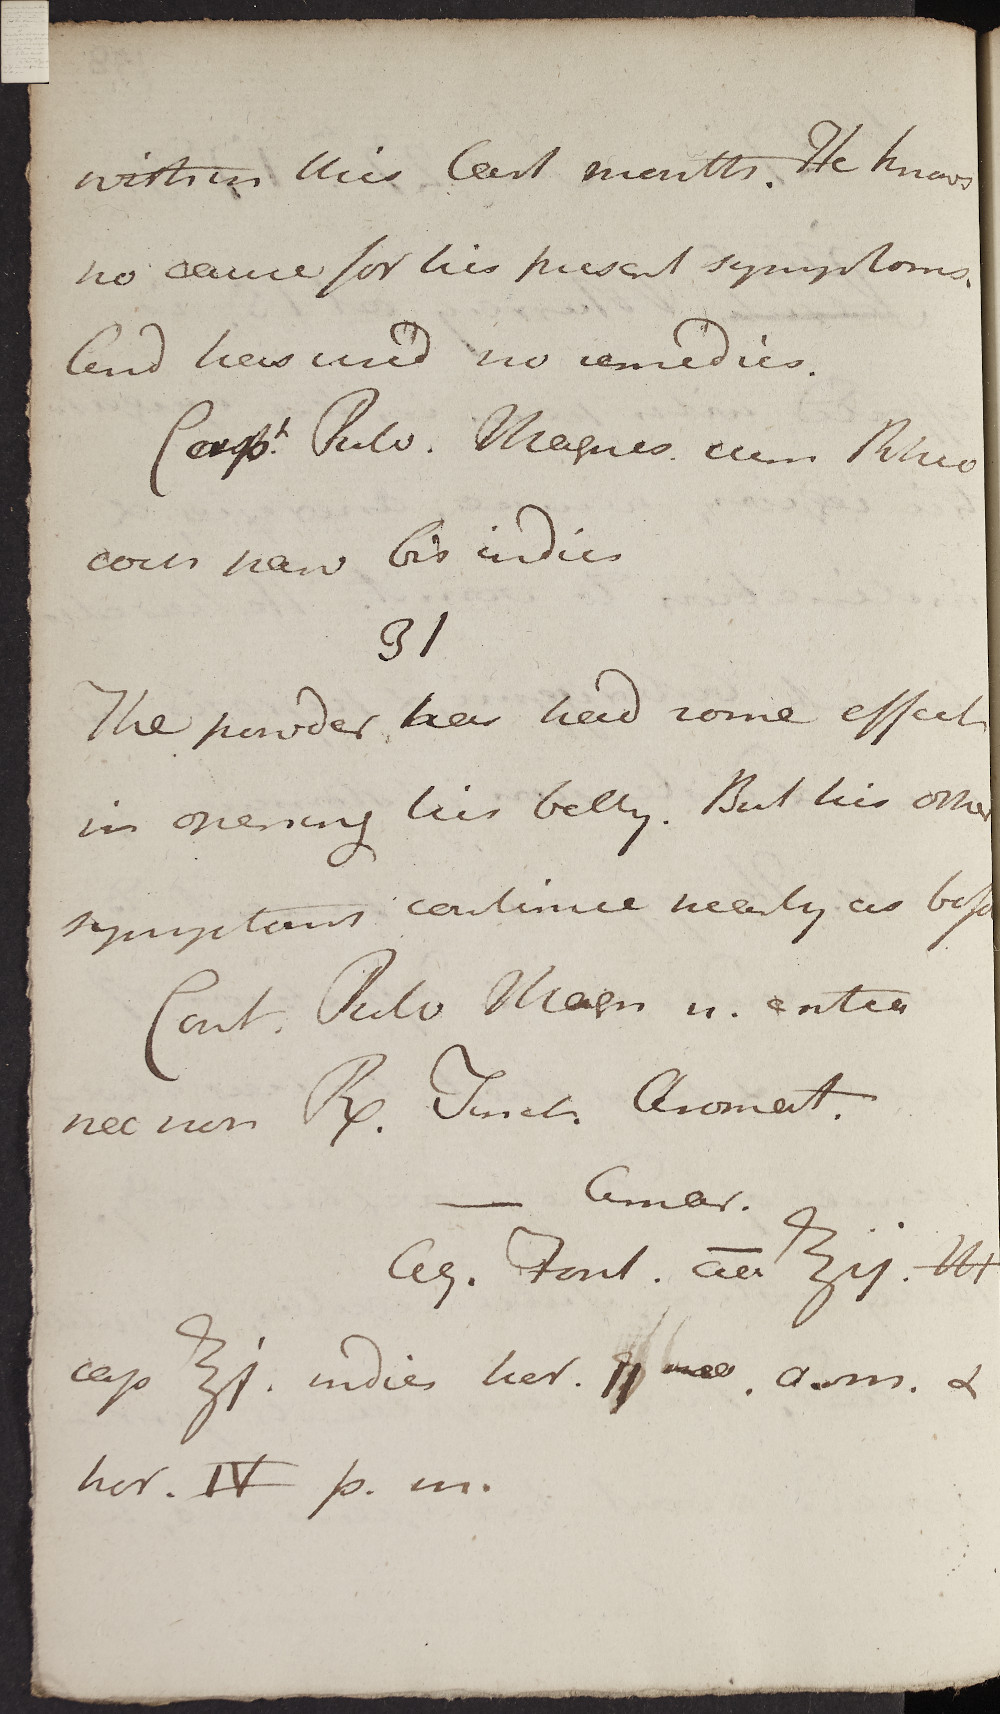 within this last month. He knows
no cause for his present symptoms.
And has used no remedies.
Capt. Pulv. Magnes. cum Rheo
coch parv bis indies
31
The powder has had some effect
in opening his belly. But his other
symptoms continue nearly as befo
Cont. Pulv Magn u. antea
nec non ℞. Tinct. Aromat.
— Amar.
Aq. Font. aa ℥ij. M
cap ℥j. indies hor. a.m. &
hor. IV p. m.